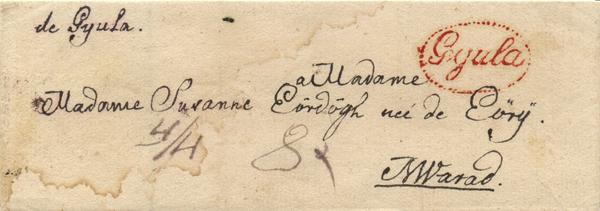 de Gyula.
Gyula
a Madame
Madame Susanne Eördögh neé de Eöry.
4/4
NWarad.